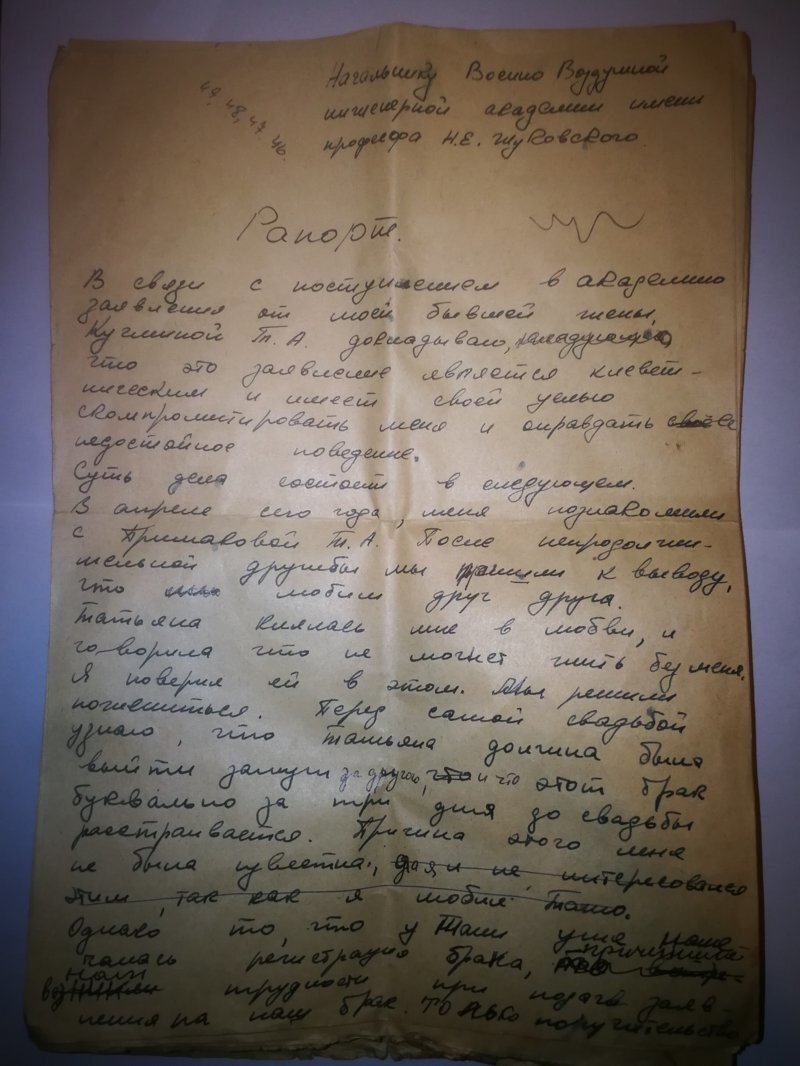 49, 48, 47, 46.
Начальнику Военно Воздушной
инженерной академии имени
профессора Н.Е. Жуковского.
Рапорт.
В связи с поступлением в академию
заявления от моей бывшей жены,
Кузминой Т. А. докладываю,
что это заявление является клевет-
ническим и имеет своей целью
скомпрометировать меня и оправдать свое
недостойное поведение.
Суть дела состоит в следующем.
В апреле сего года, меня познакомили
с Примаковой Т. А. После непродолжи-
тельной дружбы мы пришли к выводу,
что любим друг друга.
Татьяна клялась мне в любви, и
говорила что не может жить без меня.
Я поверил ей в этом. Мы решили
пожениться. Перед самой свадьбой
узнаю, что Татьяна должна была
выйти замуж за другого, что и что этот брак
буквально за три дня до свадьбы
расстраивается. Причина этого меня
не была известна, да я и не интересовался
этим, так как я любил Таню.
Однако то, что у Тани уже нача
чалась регистрация брака, причинила
нам
возникли трудности при подаче заяв-
ления на наш брак. Только поручительство